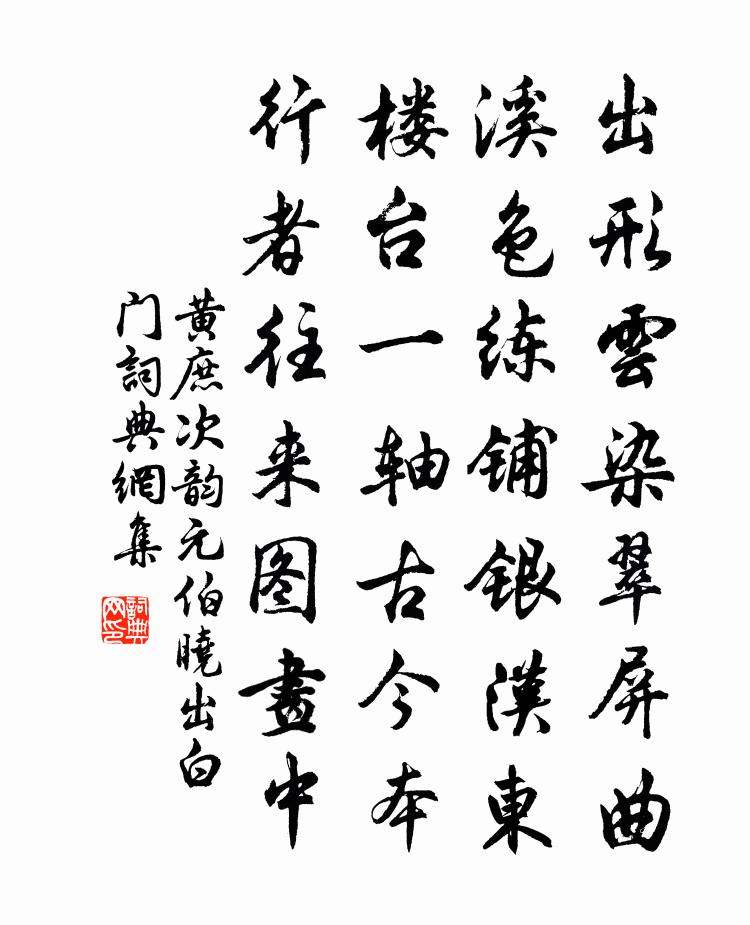 出形雲染翠屏曲
溪色练铺银漠東
楼台一轴古今本
行者往来图畫中
黄庶次韵元伯曉出白
门詞典網集
詞典
网印